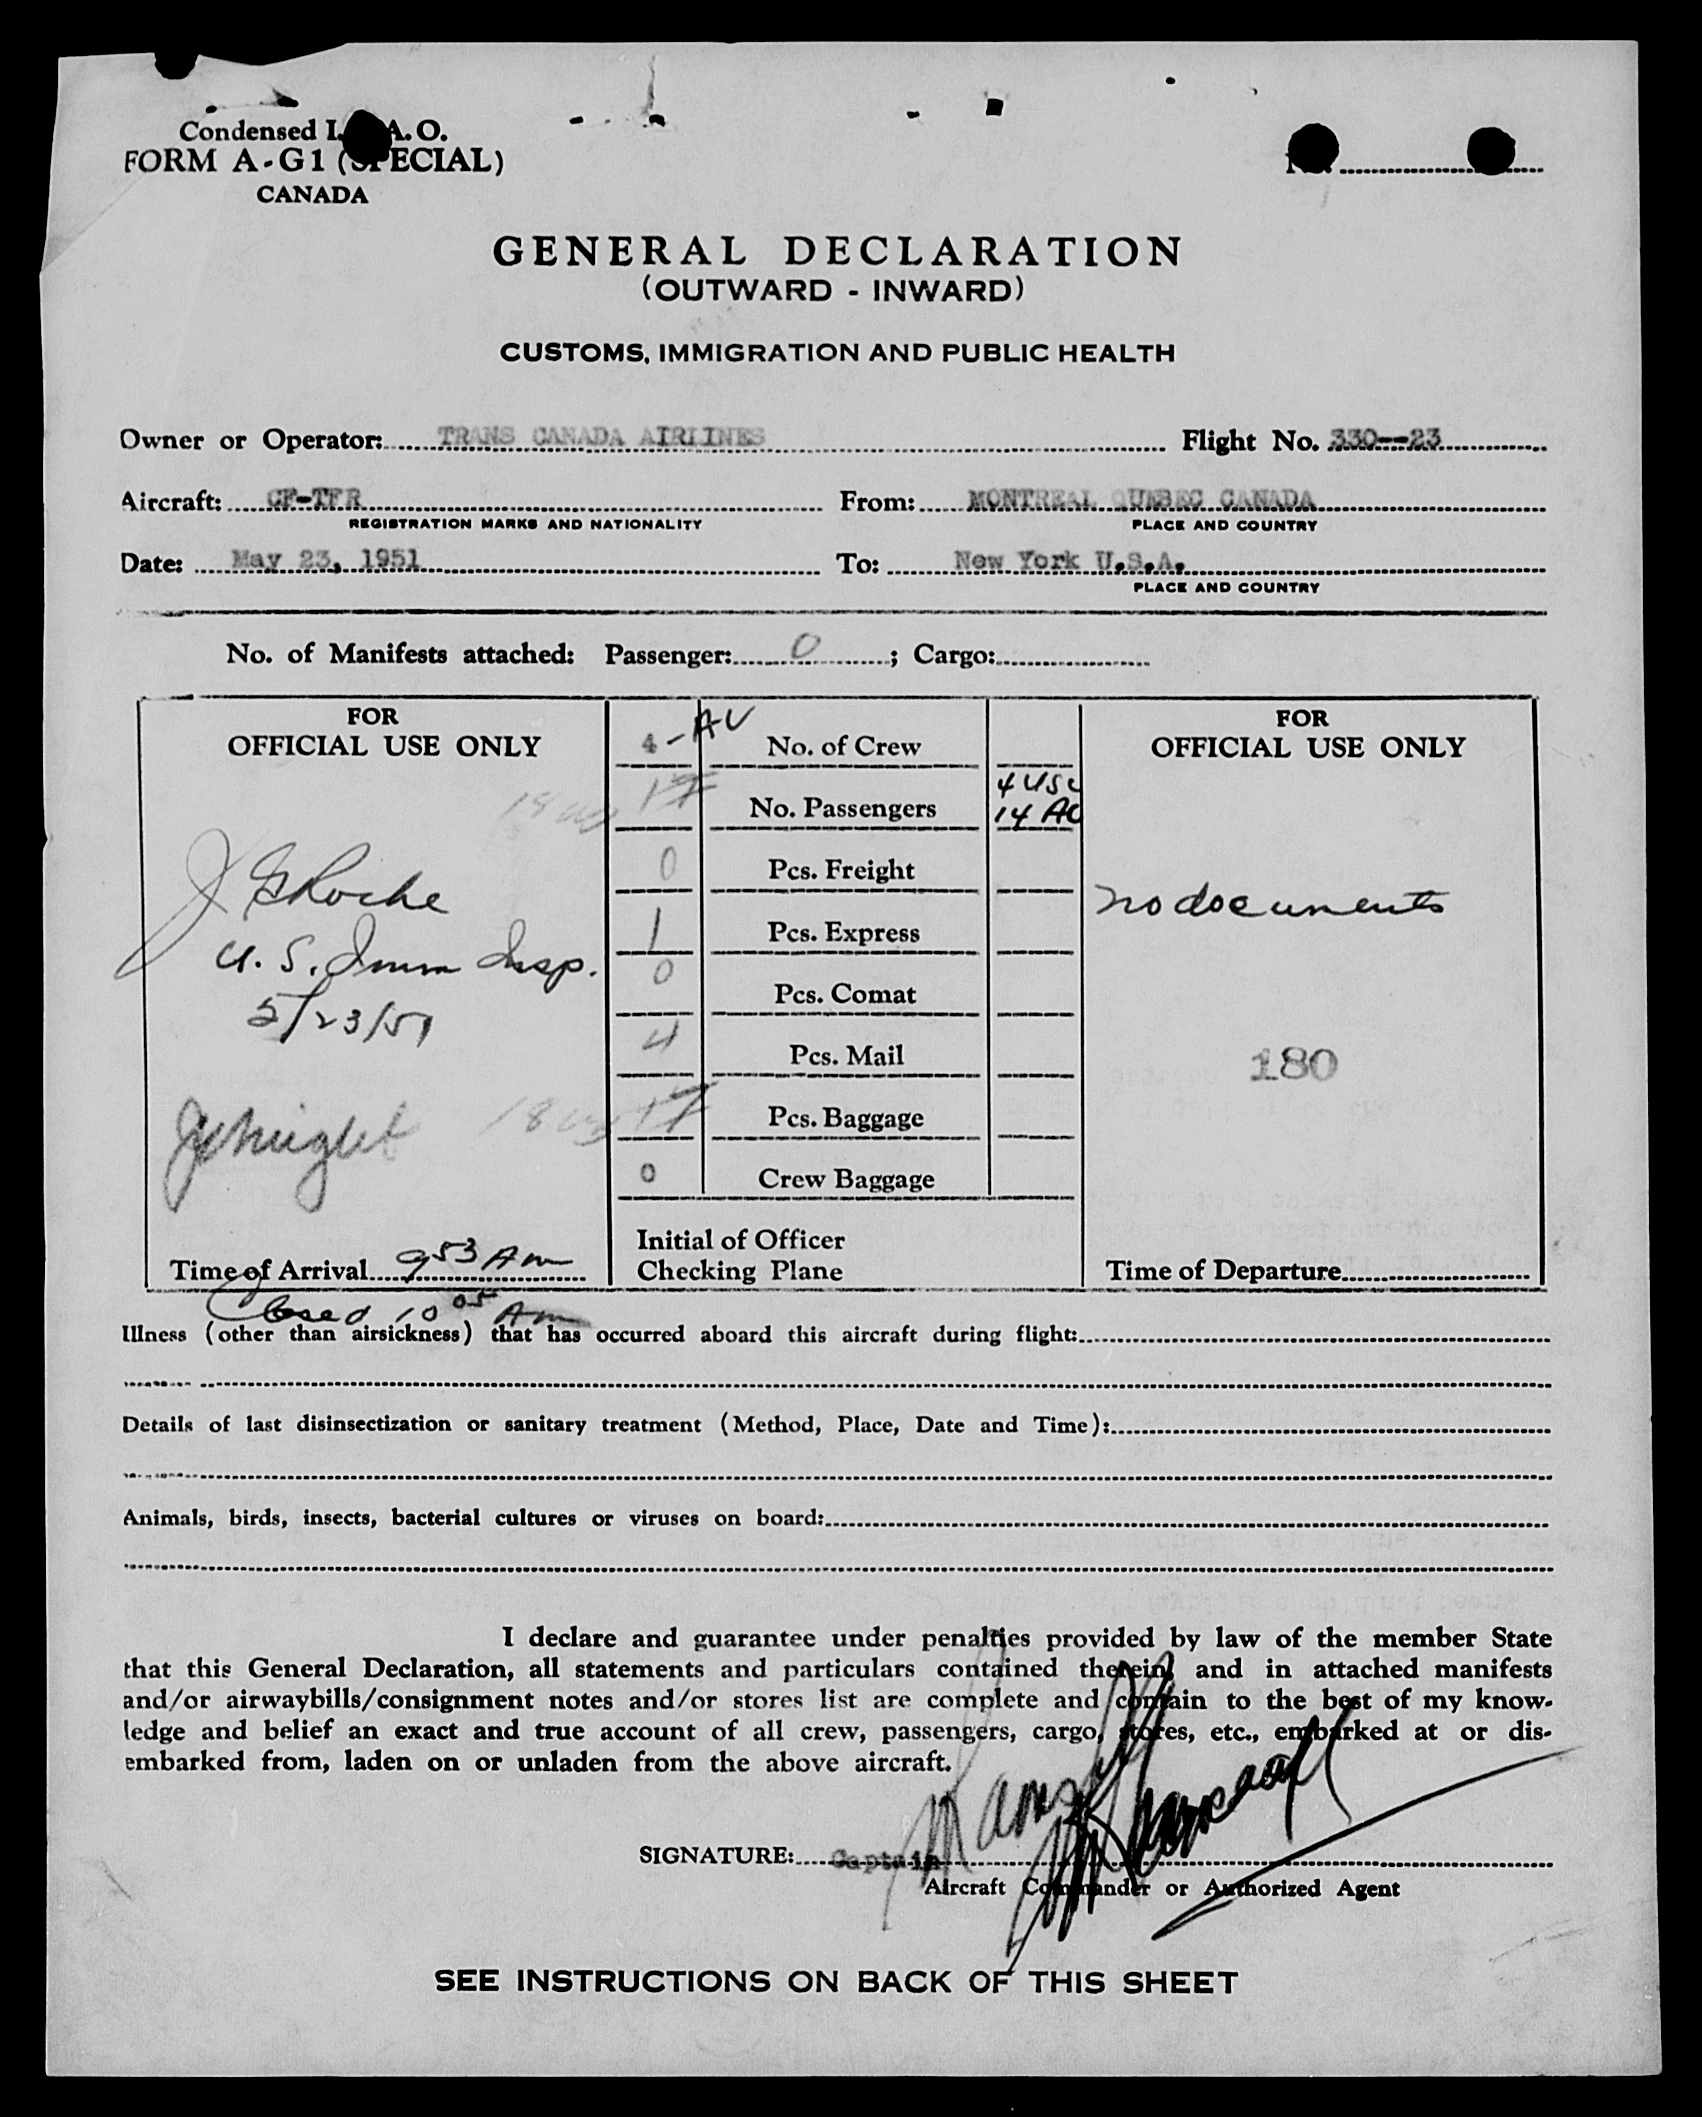 Condensed I. A.O.
FORM A-G1 (SPECIAL)
CANADA
GENERAL DECLARATION
(OUTWARD - INWARD)
CUSTOMS, IMMIGRATION AND PUBLIC HEALTH
Owner or Operator: TRANS CANADA AIRLINES Flight No. 330--23
Aircraft: CF-TFR From: MONTREAL QUEBEC CANADA
REGISTRATION MARKS AND NATIONALITY PLACE AND COUNTRY
Date: May 23, 1951 To: New York U.S.A.
PLACE AND COUNTRY
No. of Manifests attached: Passenger: 0 ; Cargo:
FOR OFFICIAL USE ONLY
4 - AC No. of Crew
17 No. Passengers 4 USC 14 AC
0 Pcs. Freight
1 Pcs. Express
0 Pcs. Comat
4 Pcs. Mail
18 17 Pcs. Baggage
0 Crew Baggage
Initial of Officer
Checking Plane
J G Roche
U. S. Imm Insp.
5/23/51
Time of Arrival 9 53 Am
Closed 10 05 Am
FOR
OFFICIAL USE ONLY
no documents
180
Time of Departure
Illness (other than airsickness) that has occurred aboard this aircraft during flight:
Details of last disinsectization or sanitary treatment (Method, Place, Date and Time):
Animals, birds, insects, bacterial cultures or viruses on board:
I declare and guarantee under penalties provided by law of the member State
that this General Declaration, all statements and particulars contained therein, and in attached manifests
and/or airwaybills/consignment notes and/or stores list are complete and contain to the best of my know-
ledge and belief an exact and true account of all crew, passengers, cargo, stores, etc., embarked at or dis-
embarked from, laden on or unladen from the above aircraft.
SIGNATURE: Captain
Aircraft Commander or Authorized Agent
SEE INSTRUCTIONS ON BACK OF THIS SHEET